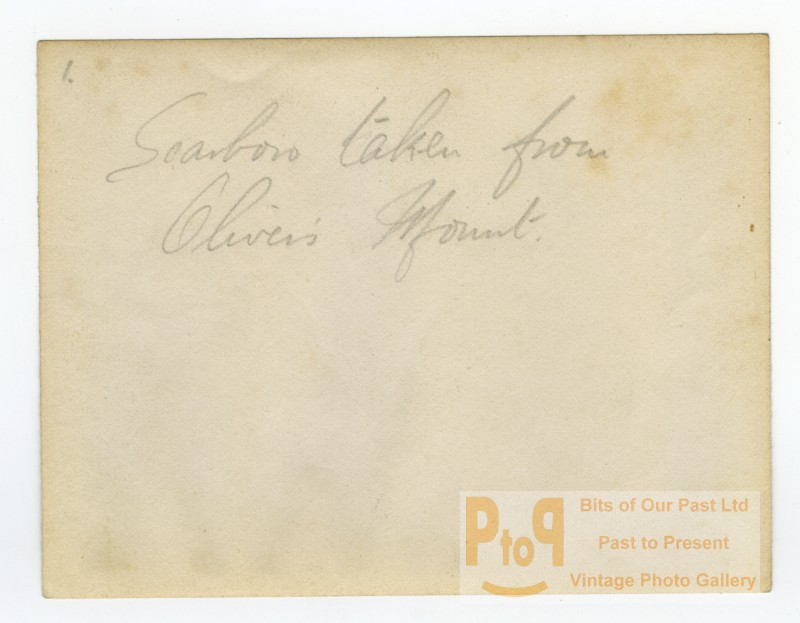 1.
Scarboro taken from
Oliver's Mount.
PtoP
Bits of Our Past Ltd
Past to Present
Vintage Photo Gallery